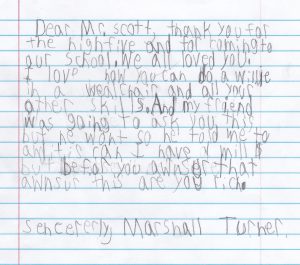 Dear Mr. scott, thank you for
the highfive and for coming to
our school. We all loved you.
I love how you can do a willie
in a wealchair and all your
other skills. And my friend
was going to ask you this
but he want so he told me to
and it is can I have 1 mill $
but befor you awnser that
awnsur this are you rich.
sencererly Marshall Turner.